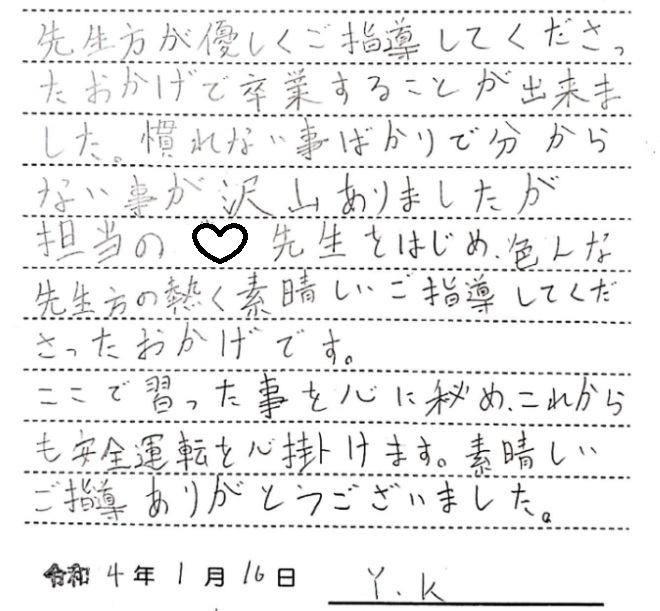 先生方が優しくご指導してくださっ
たおかげで卒業することが出来ま
した。慣れない事ばかりで分から
ない事が沢山ありましたが
担当の ♡ 先生をはじめ、色んな
先生方の熱く素晴しいご指導してくだ
さったおかげです。
ここで習った事を心に秘め、これから
も安全運転を心掛けます。素晴しい
ご指導ありがとうございました。
令和 4年 1月 16日 Y.K